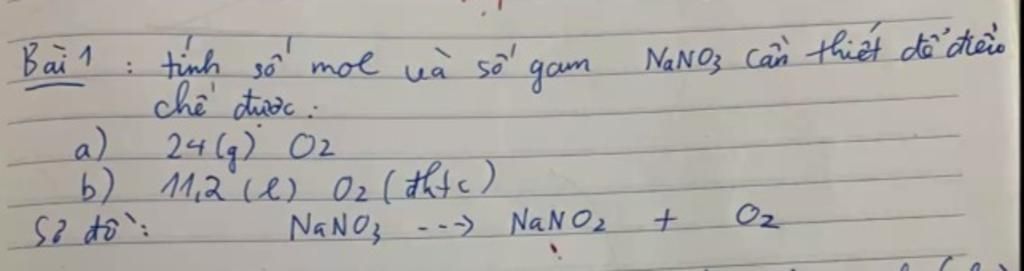 Bài 1 : tính số mol và số gam NaNO3 cần thiết để điều
chế được :
a) 24 (g) O2
b) 11,2 (l) O2 (đktc)
Sơ đồ : NaNO3 ---> NaNO2 + O2